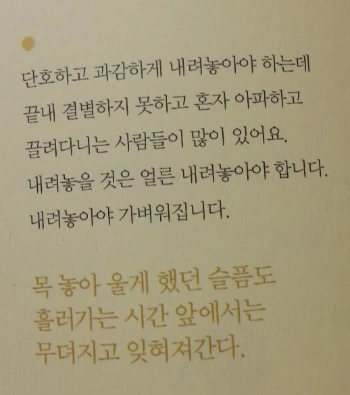 단호하고 과감하게 내려놓아야 하는데
끝내 결별하지 못하고 혼자 아파하고
끌려다니는 사람들이 많이 있어요.
내려놓을 것은 얼른 내려놓아야 합니다.
내려놓아야 가벼워집니다.
목 놓아 울게 했던 슬픔도
흘러가는 시간 앞에서는
무뎌지고 잊혀져간다.